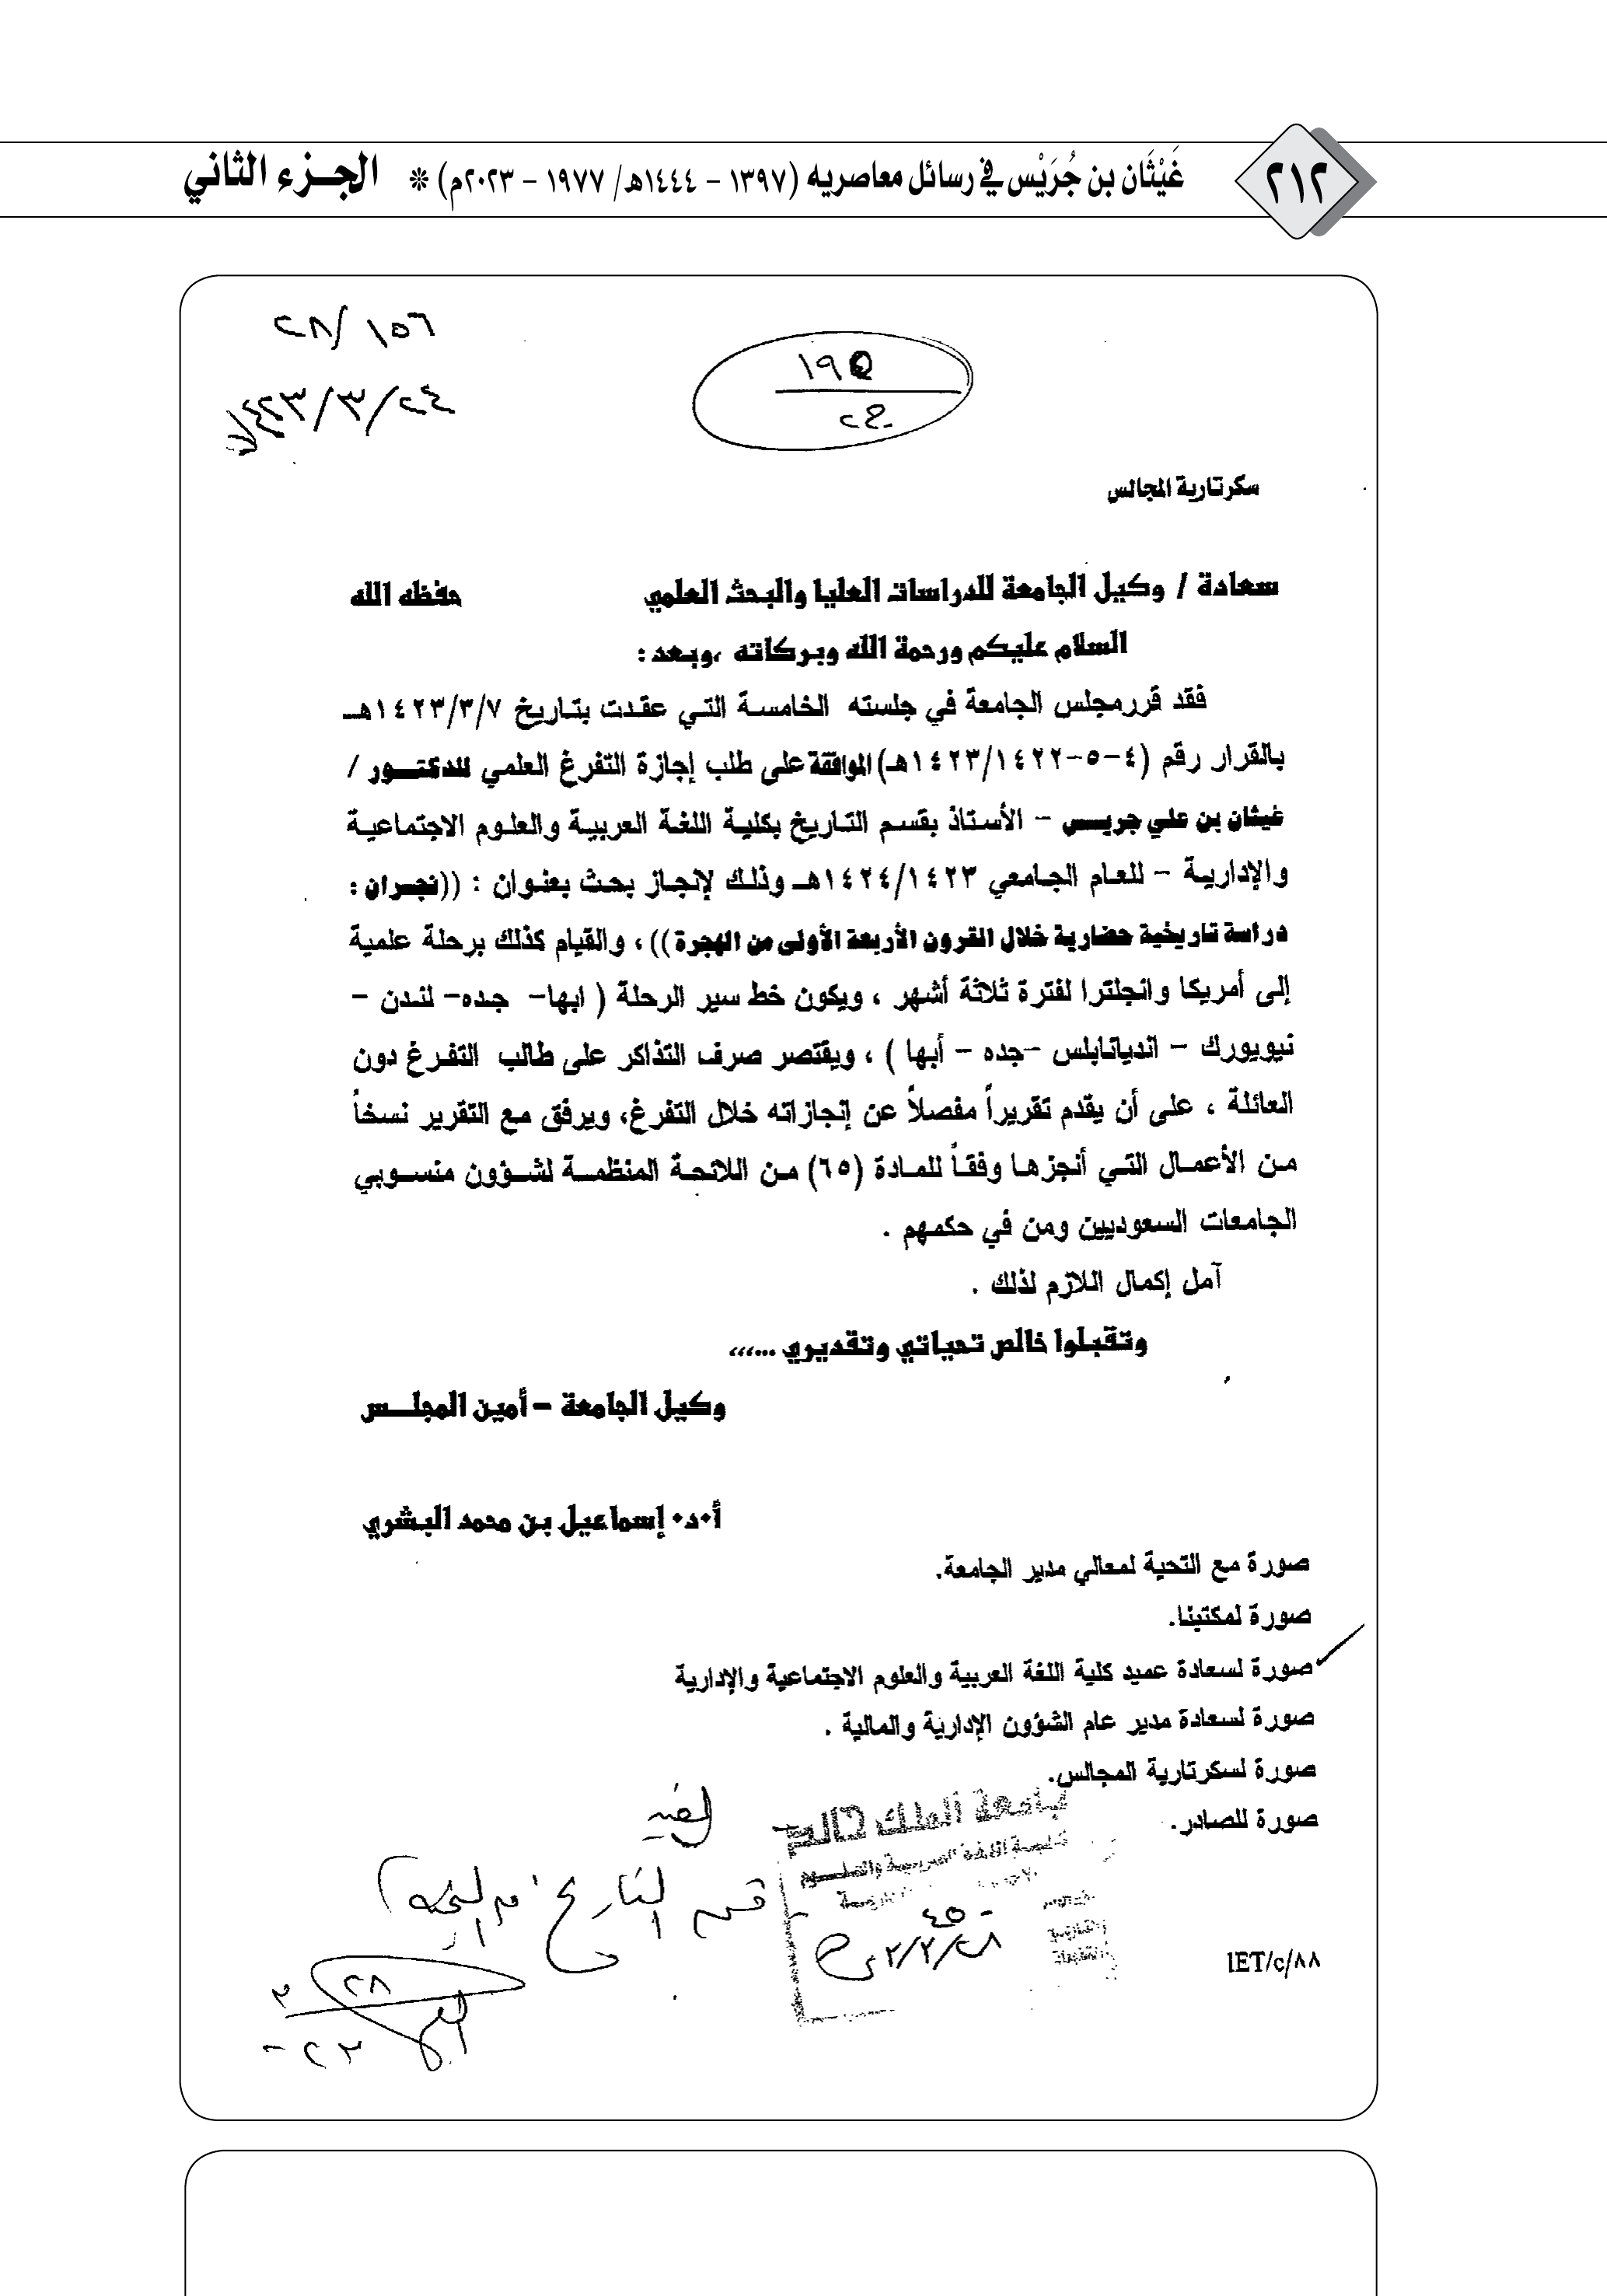 ٢١٢
غَيْثَان بن جُرَيْس في رسائل معاصريه (١٣٩٧ - ١٤٤٤هـ/ ١٩٧٧ - ٢٠٢٣م) * الجـزء الثاني
٢٨/١٥٦
١٤٢٣/٣/٢٤
سكرتارية المجالس
سعادة / وكيل الجامعة للدراسات العليا والبحث العلمي حفظه الله
السلام عليكم ورحمة الله وبركاته ،وبعد :
فقد قرر مجلس الجامعة في جلسته الخامسة التي عقدت بتاريخ ١٤٢٣/٣/٧هـ
بالقرار رقم (٤-٥-١٤٢٣/١٤٢٢هـ) الموافقة على طلب إجازة التفرغ العلمي للدكتور /
غيثان بن علي جريس - الأستاذ بقسم التاريخ بكلية اللغة العربية والعلوم الاجتماعية
والإدارية - للعام الجامعي ١٤٢٤/١٤٢٣هـ وذلك لإنجاز بحث بعنوان : ((نجران :
دراسة تاريخية حضارية خلال القرون الأربعة الأولى من الهجرة )) ، والقيام كذلك برحلة علمية
إلى أمريكا وانجلترا لفترة ثلاثة أشهر ، ويكون خط سير الرحلة ( ابها- جده- لندن -
نيويورك - انديانابلس -جده - أبها ) ، ويقتصر صرف التذاكر على طالب التفرغ دون
العائلة ، على أن يقدم تقريراً مفصلاً عن إنجازاته خلال التفرغ، ويرفق مع التقرير نسخاً
من الأعمال التي أنجزها وفقاً للمادة (٦٥) من اللائحة المنظمة لشؤون منسوبي
الجامعات السعوديين ومن في حكمهم .
آمل إكمال اللازم لذلك .
وتقبلوا خالص تحياتي وتقديري ...،،،
وكيل الجامعة - أمين المجلس
أ٠د٠ إسماعيل بن محمد البشري
صورة مع التحية لمعالي مدير الجامعة.
صورة لمكتبنا.
صورة لسعادة عميد كلية اللغة العربية والعلوم الاجتماعية والإدارية
صورة لسعادة مدير عام الشؤون الإدارية والمالية .
صورة لسكرتارية المجالس.
صورة للصادر.
جامعة الملك خالد
كلية اللغة العربية والعلوم
قسم التاريخ
٢٨
IET/c/٨٨